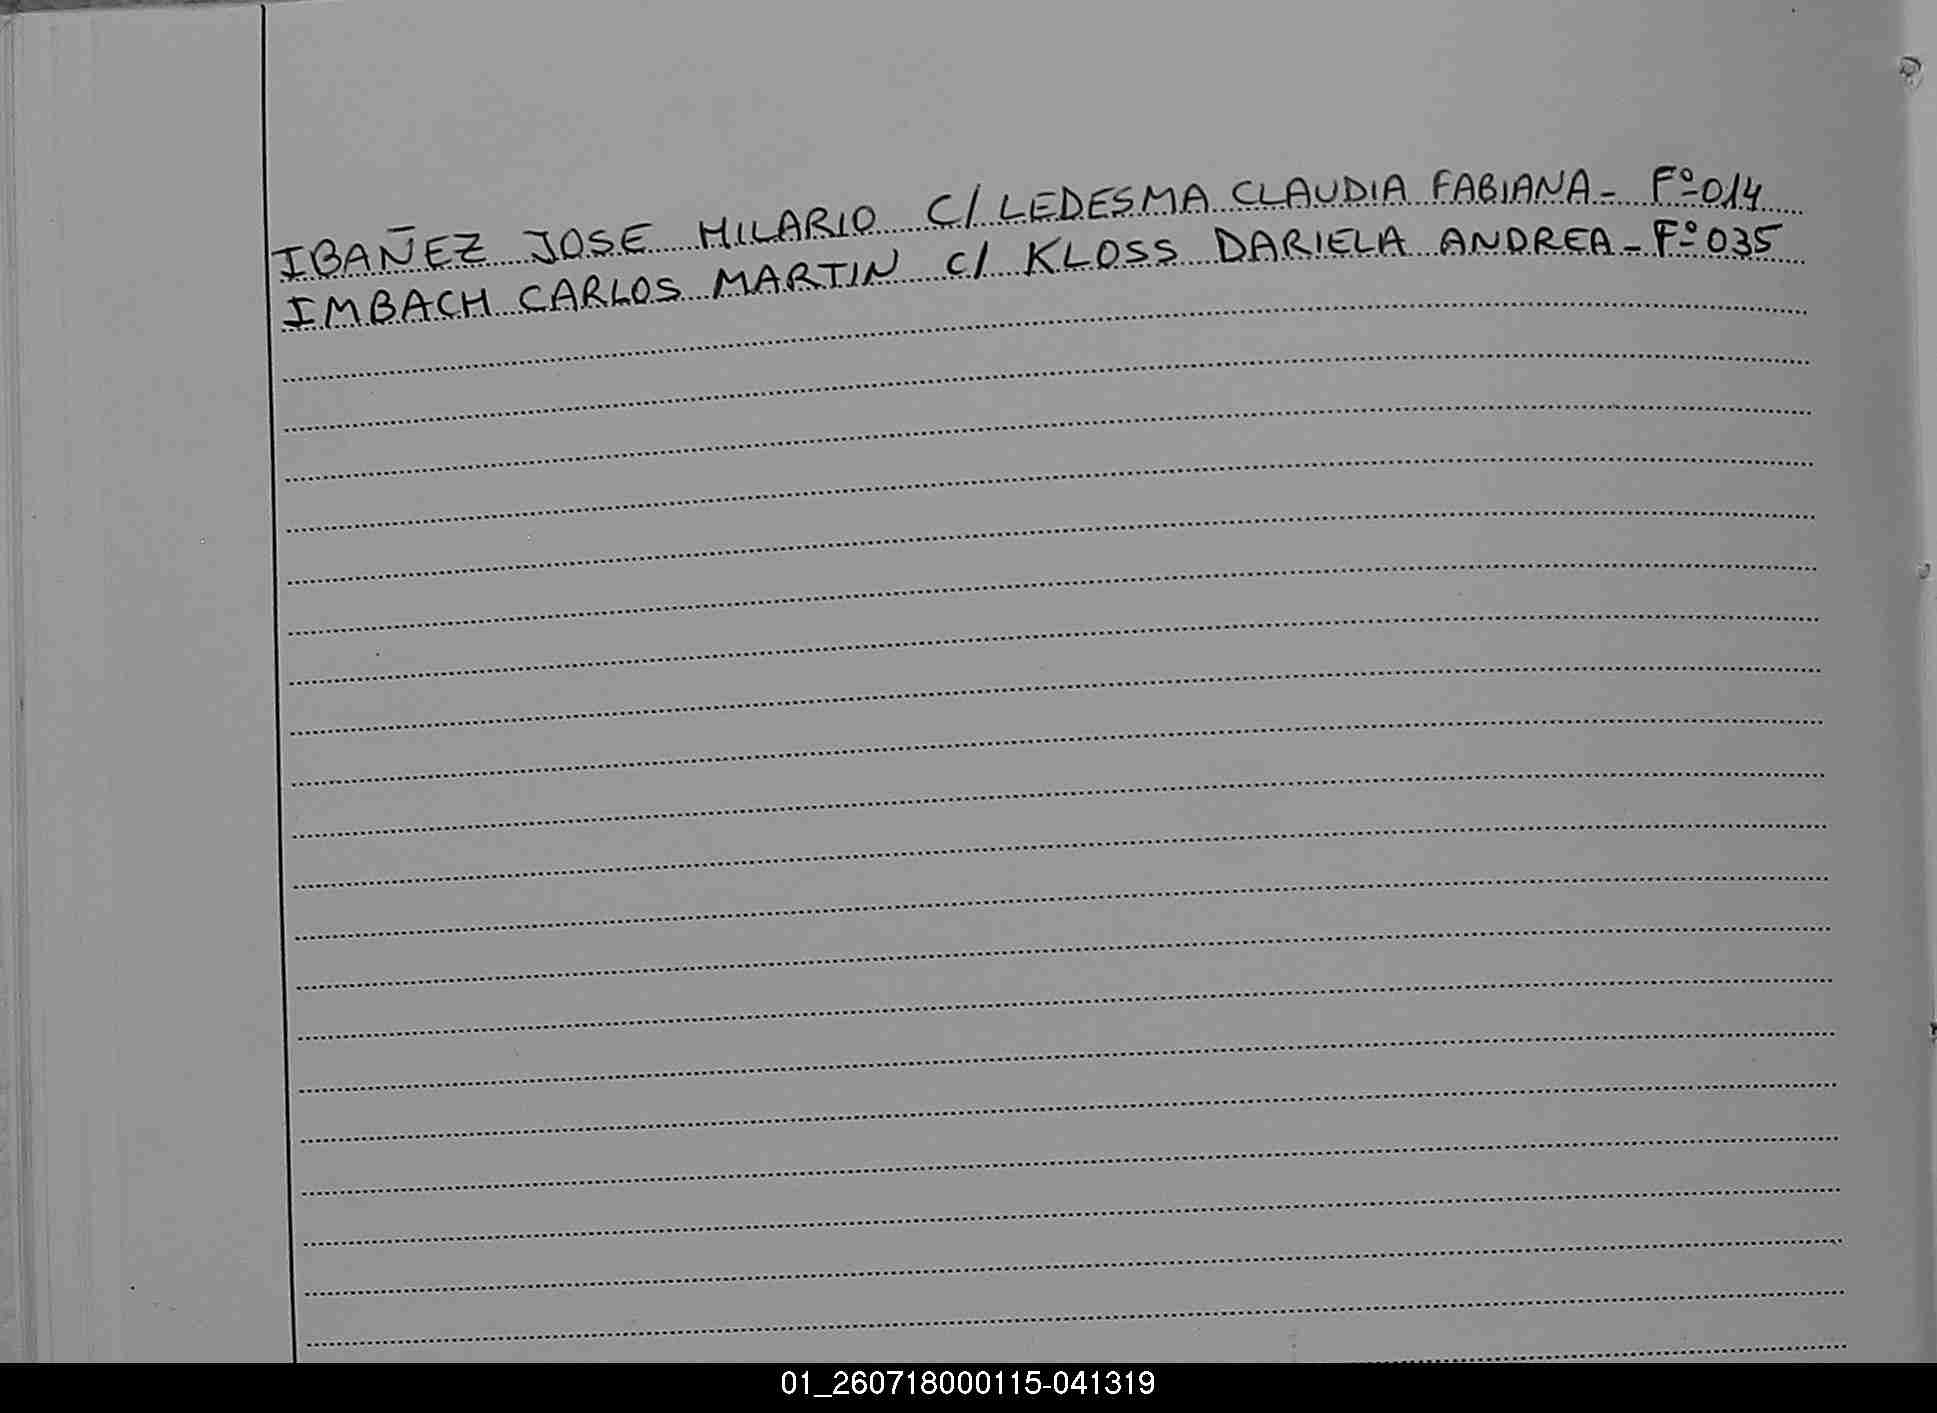 IBAÑEZ JOSE HILARIO C/ LEDESMA CLAUDIA FABIANA - Fº 014
IMBACH CARLOS MARTIN C/ KLOSS DARIELA ANDREA - Fº 035
01_260718000115-041319